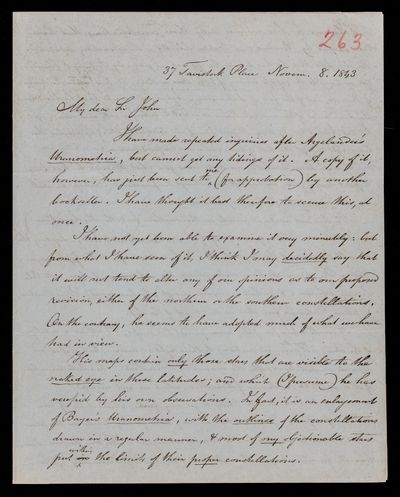 263
37 Tavistock Place Novem. 8. 1843
My dear Sir John
I have made repeated inquiries after Argelander's
Uranometria, but cannot get any tidings of it. A copy of it,
however, has just been sent me (for approbation) by another
bookseller. I have thought it best therefore to secure this, at
once.
I have not yet been able to examine it very minutely: but
from what I have seen of it, I think I may decidedly say that
it will not tend to alter any of our opinions as to our proposed
revision, either of the northern or the southern constellations.
On the contrary, he seems to have adopted much of what we have
had in view.
His maps contain only those stars that are visible to the
naked eye in these latitudes; and which (I presume) he has
verified by his own observations. In fact, it is an enlargement
of Bayer's Uranometria, with the outlines of the constellations
drawn in a regular manner, & most of my objectionable stars
put within the limits of their proper constellations.